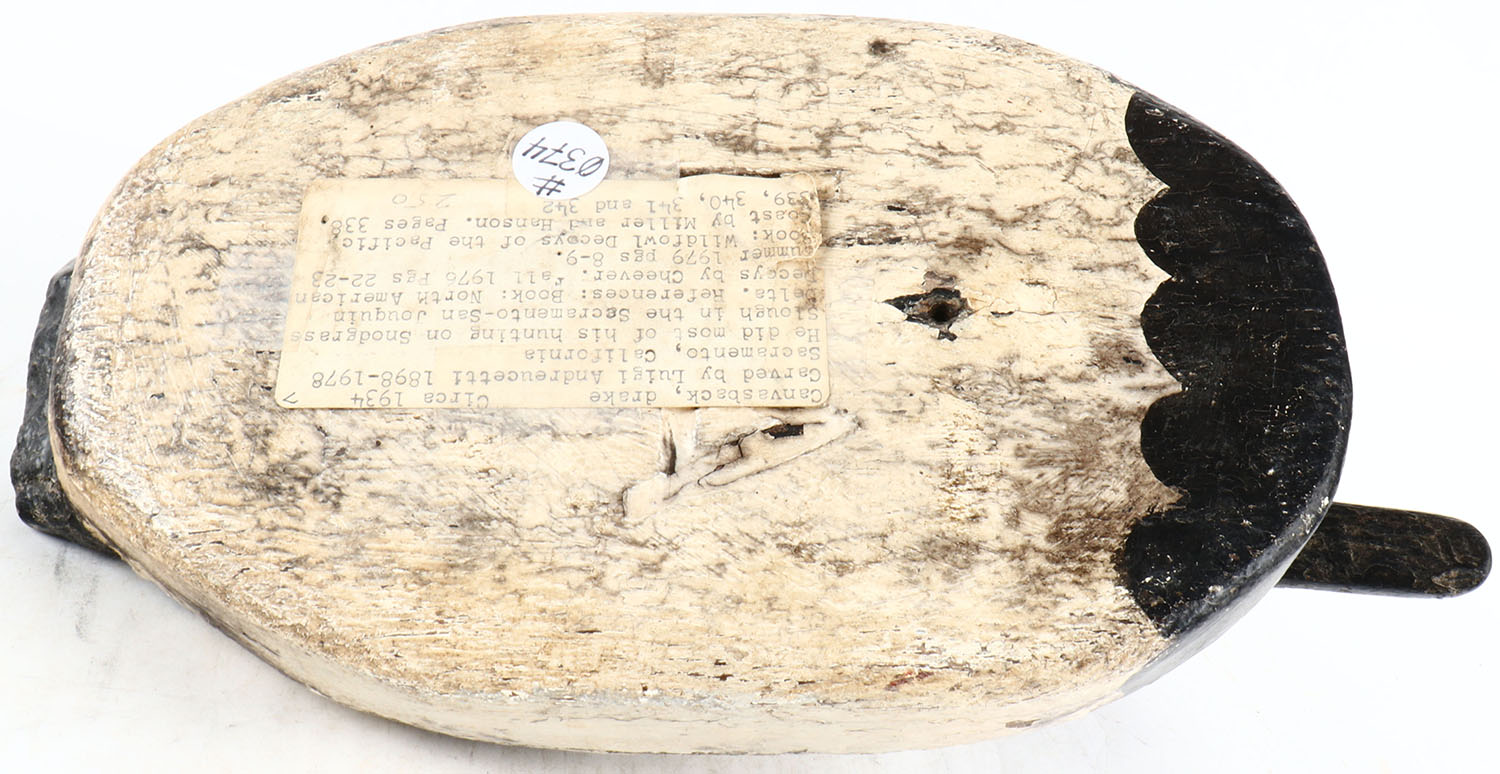 Canvasback, drake Circa 1934
Carved by Luigi Andreucetti 1898-1978
Sacramento, California
He did most of his hunting on Snodgrass
Slough in the Sacramento-San Jouquin
Delta. References: Book: North American
Decoys by Cheever. Fall 1976 Pgs 22-23
Summer 1979 pgs 8-9.
Book: Wildfowl Decoys of the Pacific
Coast by Miller and Hanson. Pages 338
339, 340, 341 and 342
250
# 0374